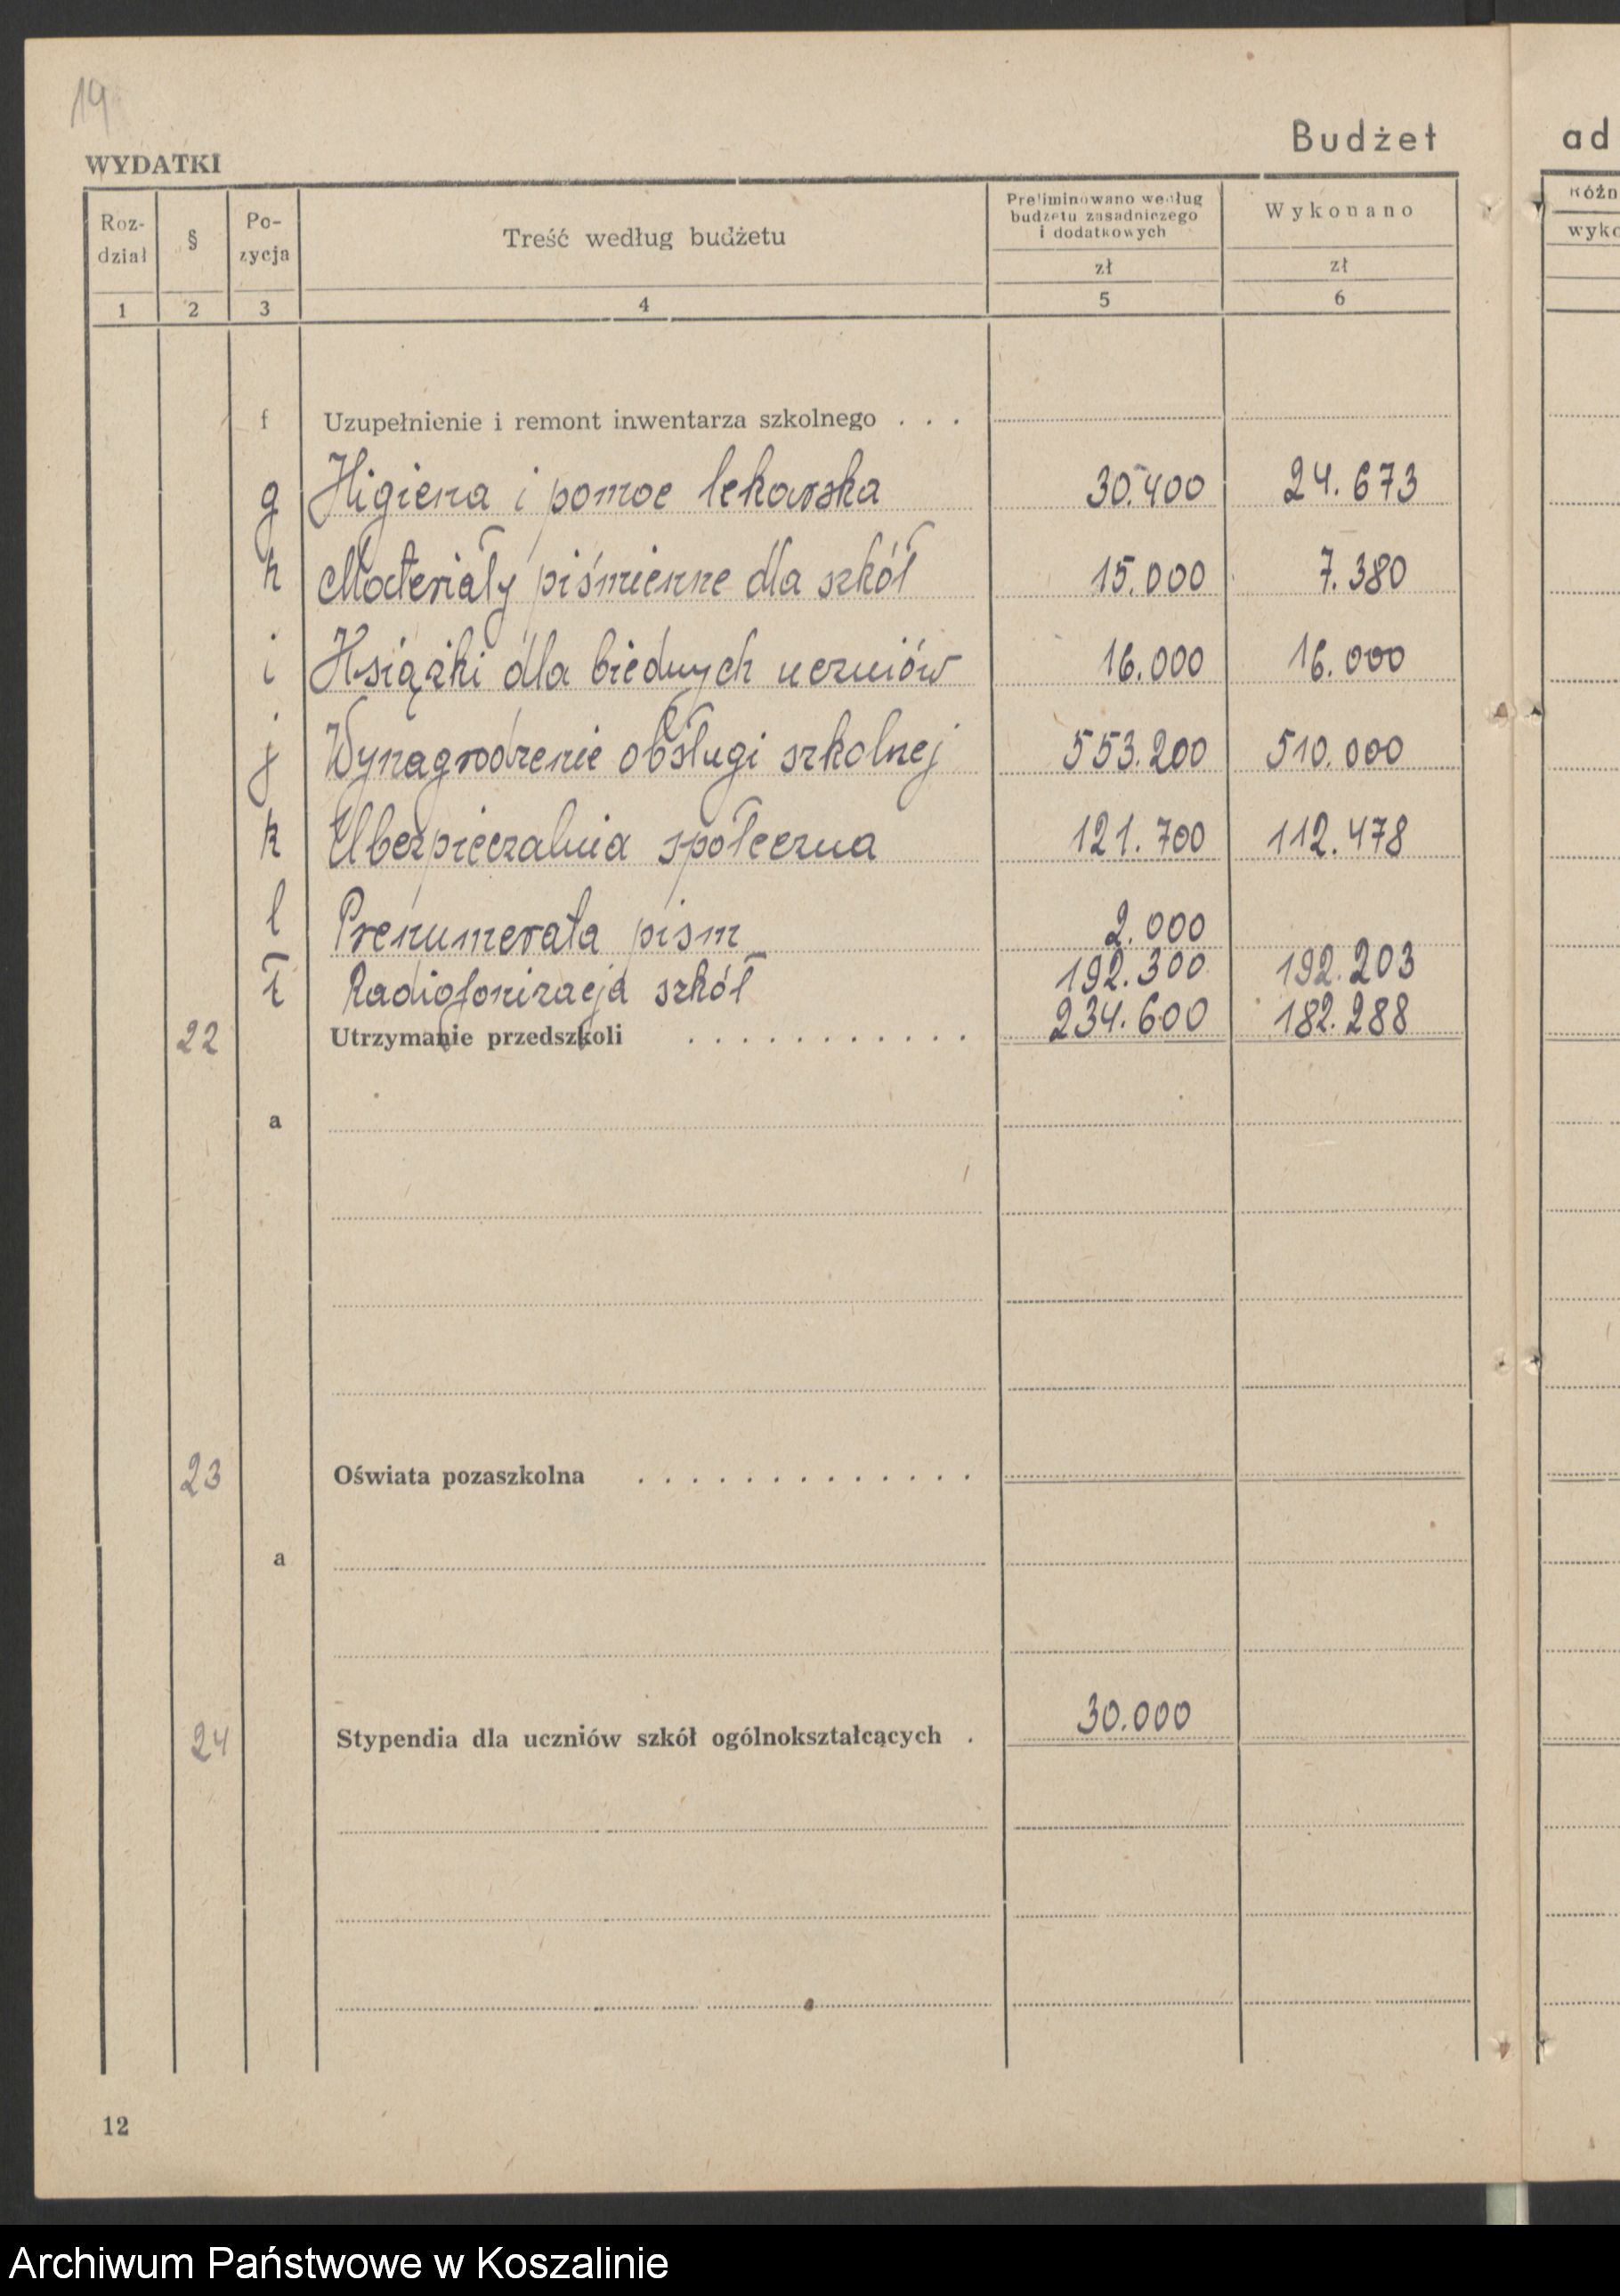 19
WYDATKI
Budżet
ad
Roz-
dział
§
Po-
zycja
Treść według budżetu
Preliminowano według
budżetu zasadniczego
i dodatkowych
Wykonano
Różn
wyko
zł
zł
1 2 3 4 5 6
f Uzupełnienie i remont inwentarza szkolnego . . .
g Higiena i pomoc lekarska 30.400 24.673
h Materiały piśmienne dla szkół 15.000 7.380
i Książki dla biednych uczniów 16.000 16.000
j Wynagrodzenie obsługi szkolnej 553.200 510.000
k Ubezpieczalnia społeczna 121.700 112.478
l Prenumerata pism 2.000
ł Radiofonizacja szkół 192.300 192.203
22 Utrzymanie przedszkoli . . . . . . . . . . . 234.600 182.288
a
23 Oświata pozaszkolna . . . . . . . . . . . . .
a
24 Stypendia dla uczniów szkół ogólnokształcących . 30.000
12
Archiwum Państwowe w Koszalinie